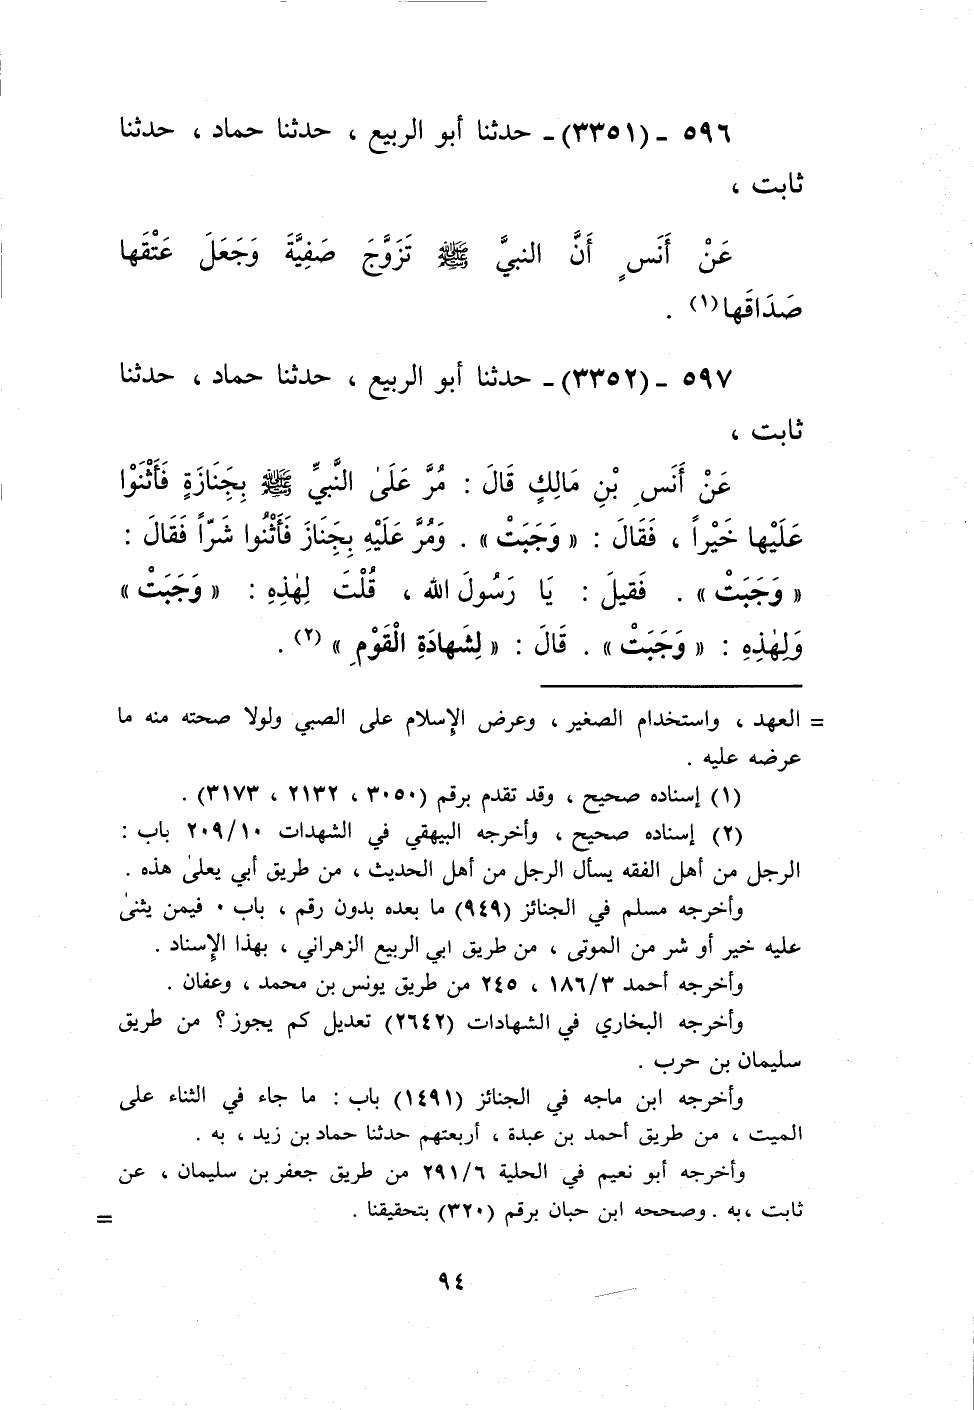 ٥٩٦ - (٣٣٥١) - حدثنا أبو الربيع ، حدثنا حماد ، حدثنا
ثابت ،
عَنْ أَنَسٍ أَنَّ النبيَّ ﷺ تَزَوَّجَ صَفِيَّةَ وَجَعَلَ عَتْقَها
صَدَاقَها(١) .
٥٩٧ - (٣٣٥٢) - حدثنا أبو الربيع ، حدثنا حماد ، حدثنا
ثابت ،
عَنْ أَنَسِ بْنِ مَالِكٍ قَالَ : مُرَّ عَلَىٰ النَّبيِّ ﷺ بِجَنَازَةٍ فَأَثْنَوْا
عَلَيْها خَيْراً ، فَقَالَ : « وَجَبَتْ » . وَمُرَّ عَلَيْهِ بِجَنَازَ فَأَثْنُوا شَرّاً فَقَالَ :
« وَجَبَتْ » . فَقيلَ : يَا رَسُولَ الله ، قُلْتَ لِهٰذِهِ : « وَجَبَتْ »
وَلِهٰذِهِ : « وَجَبَتْ » . قَالَ : « لِشَهادَةِ الْقَوْمِ » (٢) .
= العهد ، واستخدام الصغير ، وعرض الإسلام على الصبي ولولا صحته منه ما
عرضه عليه .
(١) إسناده صحيح ، وقد تقدم برقم (٣٠٥٠ ، ٢١٣٢ ، ٣١٧٣) .
(٢) إسناده صحيح ، وأخرجه البيهقي في الشهدات ٢٠٩/١٠ باب :
الرجل من أهل الفقه يسأل الرجل من أهل الحديث ، من طريق أبي يعلىٰ هذه .
وأخرجه مسلم في الجنائز (٩٤٩) ما بعده بدون رقم ، باب ٠ فيمن يثنىٰ
عليه خير أو شر من الموتى ، من طريق ابي الربيع الزهراني ، بهذا الإسناد .
وأخرجه أحمد ١٨٦/٣ ، ٢٤٥ من طريق يونس بن محمد ، وعفان .
وأخرجه البخاري في الشهادات (٢٦٤٢) تعديل كم يجوز؟ من طريق
سليمان بن حرب .
وأخرجه ابن ماجه في الجنائز (١٤٩١) باب : ما جاء في الثناء على
الميت ، من طريق أحمد بن عبدة ، أربعتهم حدثنا حماد بن زيد ، به .
وأخرجه أبو نعيم في الحلية ٢٩١/٦ من طريق جعفر بن سليمان ، عن
ثابت ،به . وصححه ابن حبان برقم (٣٢٠) بتحقيقنا . =
٩٤